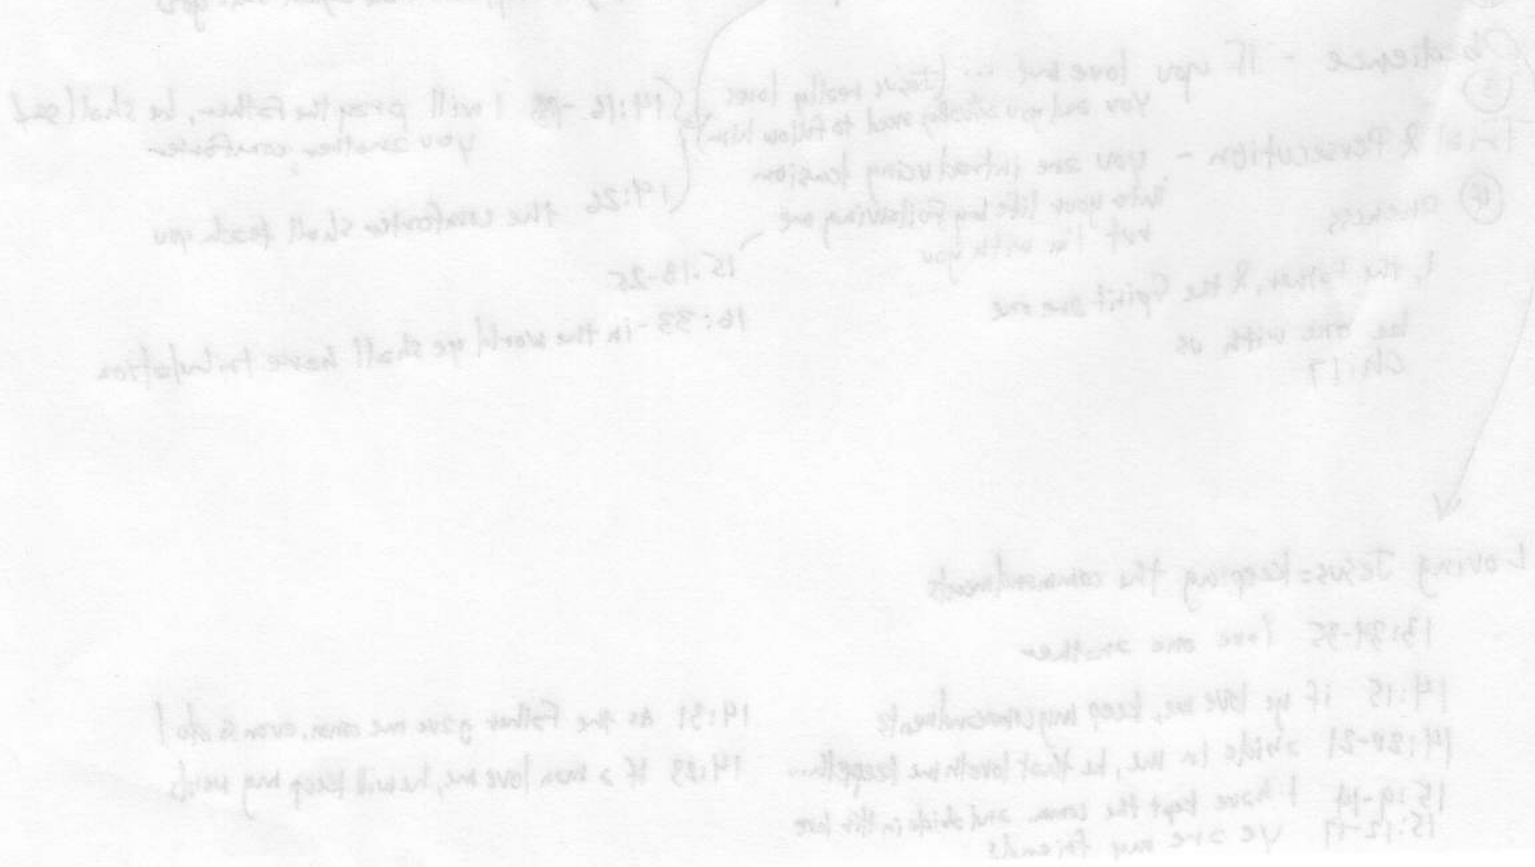 Obedience - If you love me ... (Jesus really loves
you and you really need to follow him)
③
Trial & Persecution - you are introducing tension
into your life by following me
but I'm with you
④ Oneness
I, the Father, & the Spirit are one
be one with us
Ch. 17
14:16 I will pray the Father, he shall send
you another comforter
14:26 the comforter shall teach you
15:18-25
16:33 - in the world ye shall have tribulation
Loving Jesus = keeping the commandments
13:34-35 love one another
14:15 if ye love me, keep my commandments
14:20-21 abide in me, he that loveth me keepeth...
15:9-14 I have kept the comm. and abide in his love
15:12-17 ye are my friends
14:31 As the Father gave me comm. even so I do
14:23 If a man love me, he will keep my words